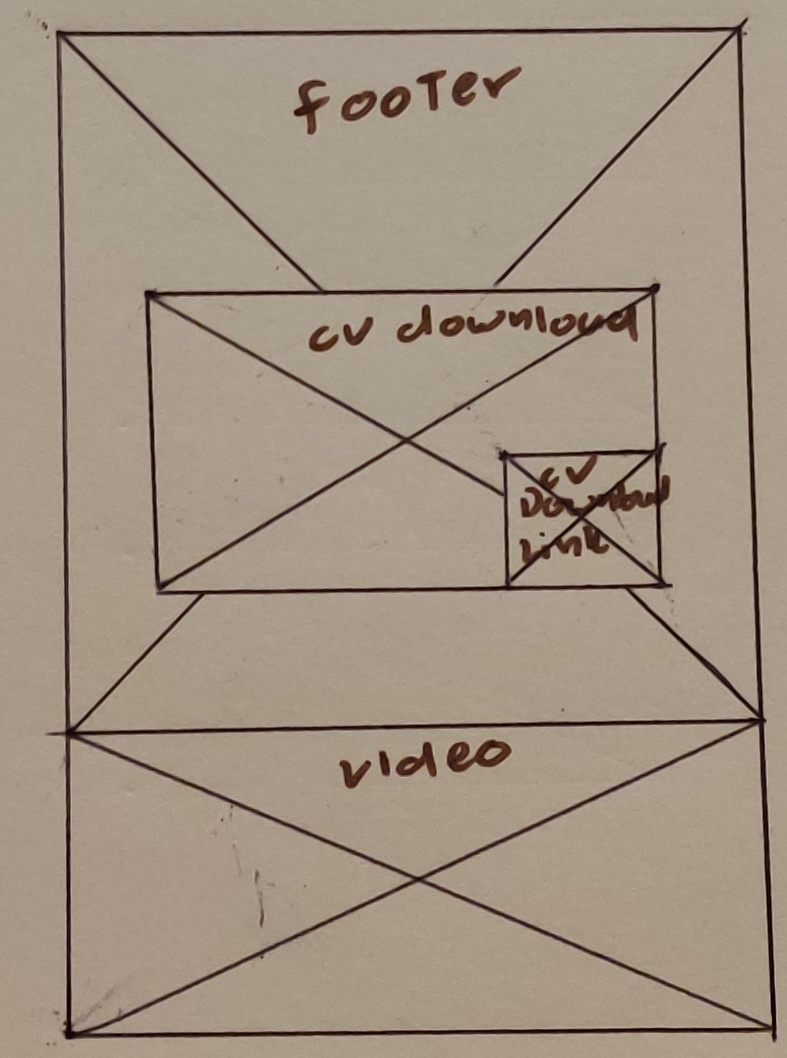 footer
cv download
cv
Download
Link
video